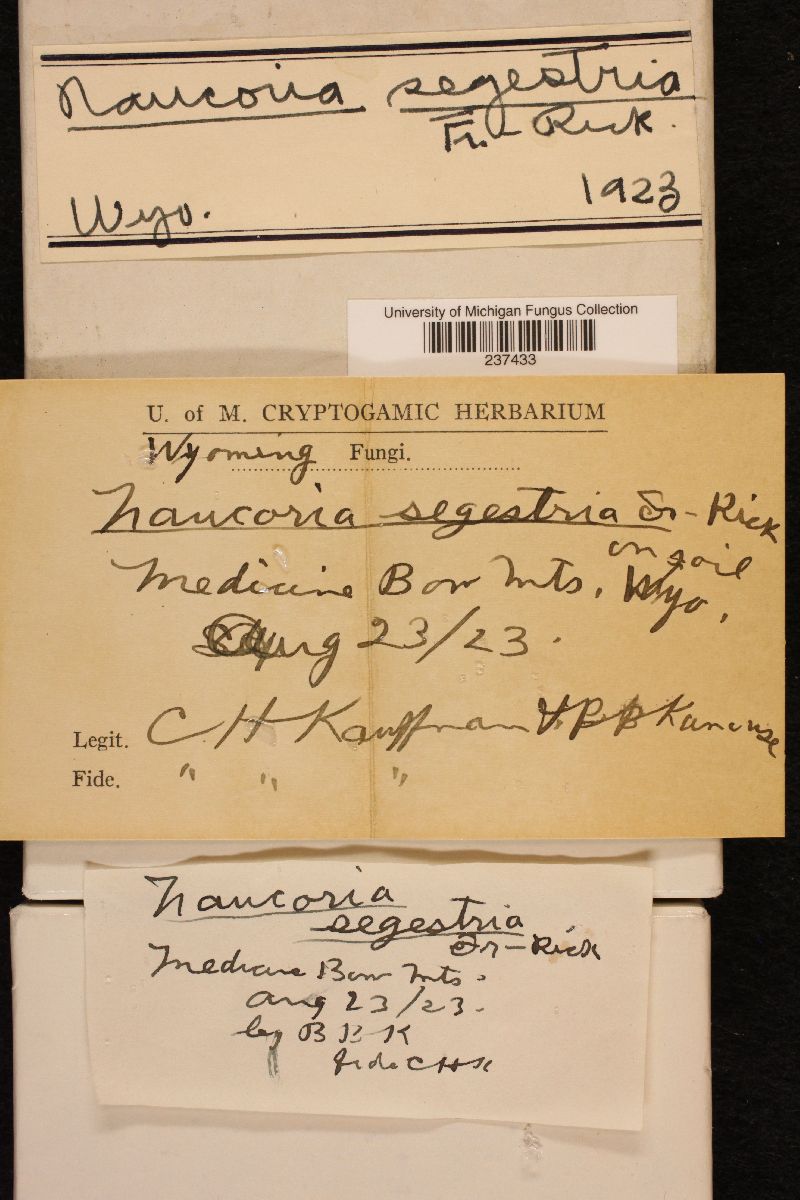 Naucoria segestria
Fr.- Rick.
Wyo. 1923
University of Michigan Fungus Collection
237433
U. of M. CRYPTOGAMIC HERBARIUM
Wyoming Fungi.
Naucoria segestria Fr-Rick
on soil
Medicine Bow Mts, Wyo,
Aug 23/23.
Legit. C H Kauffman & B B Kanouse
Fide. " " "
Naucoria
segestria
Fr-Rick
Medicine Bow Mts.
Aug 23/23.
by B B K
fide CHK